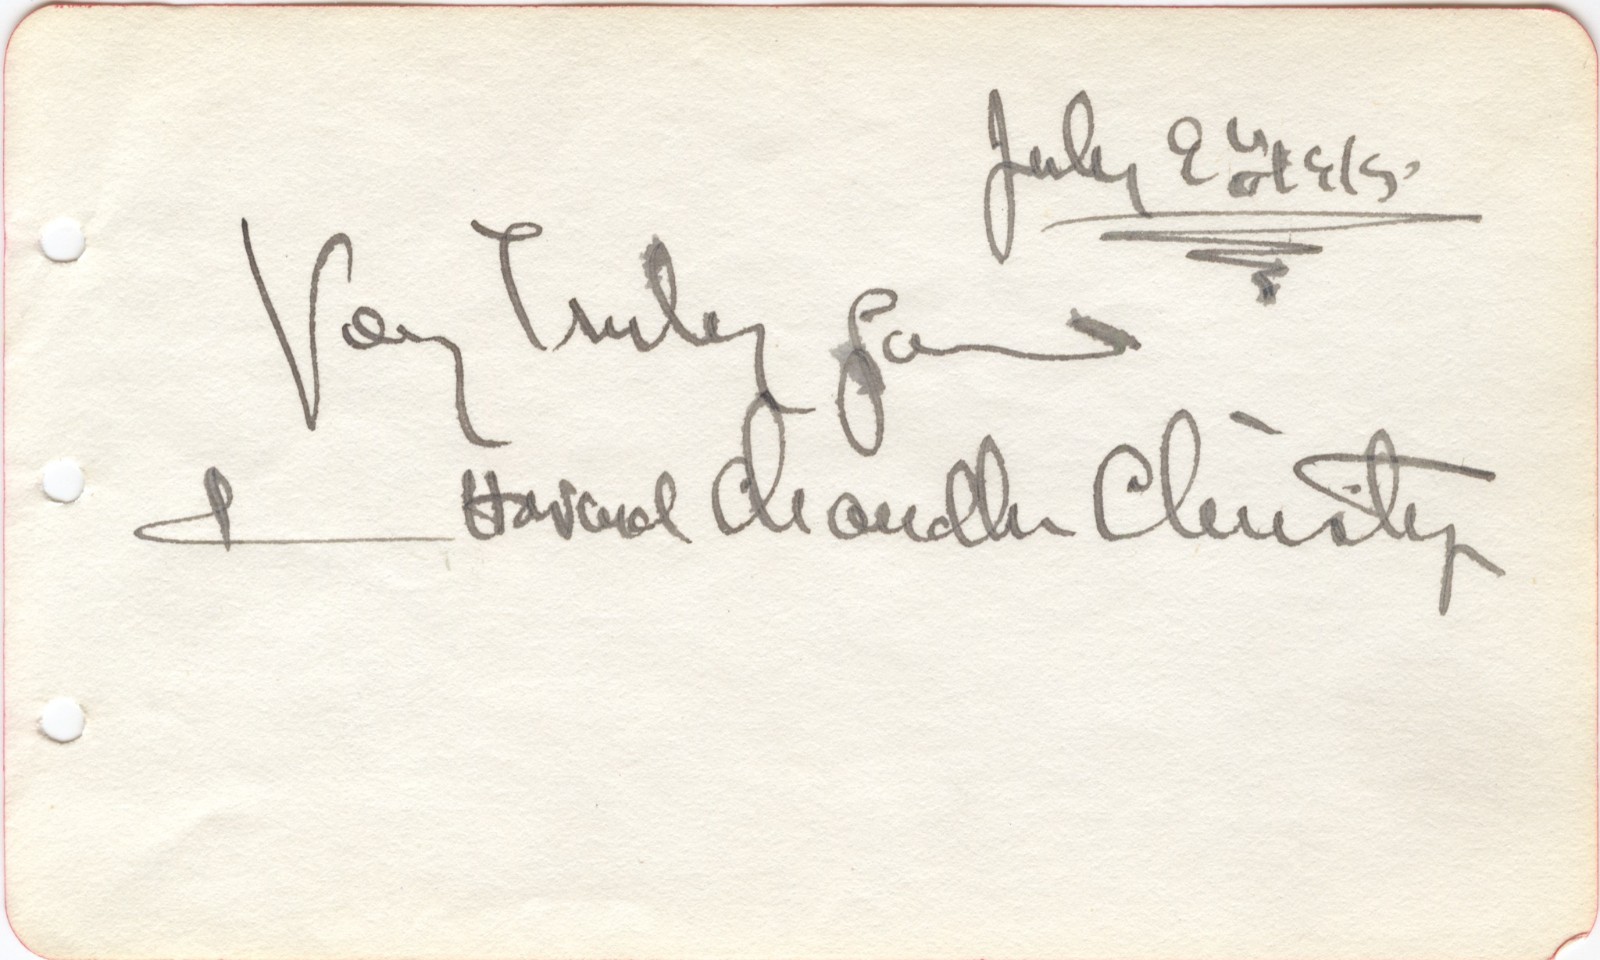 July 9
Very Truly Yours
Howard Chandler Christy